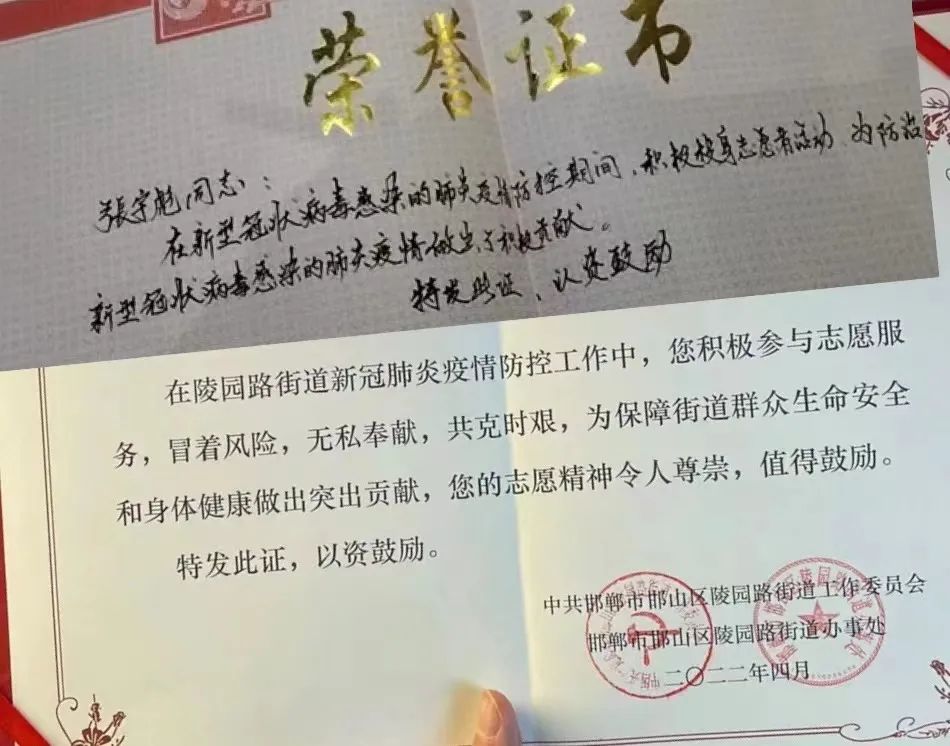 荣誉证书
张宇彪同志：
在新型冠状病毒感染的肺炎疫情防控期间，积极投身志愿者活动，为防治
新型冠状病毒感染的肺炎疫情做出了积极贡献。
特发此证，以资鼓励
在陵园路街道新冠肺炎疫情防控工作中，您积极参与志愿服
务，冒着风险，无私奉献，共克时艰，为保障街道群众生命安全
和身体健康做出突出贡献，您的志愿精神令人尊崇，值得鼓励。
特发此证，以资鼓励。
中共邯郸市邯山区陵园路街道工作委员会
邯郸市邯山区陵园路街道办事处
二〇二二年四月